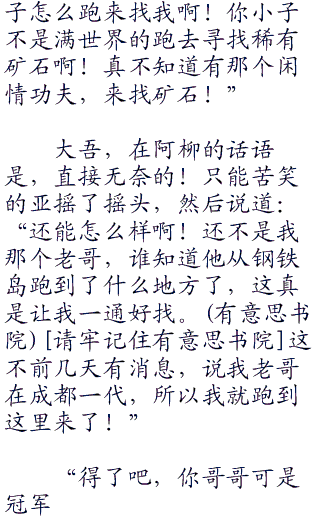 子怎么跑来找我啊！你小子
不是满世界的跑去寻找稀有
矿石啊！真不知道有那个闲
情功夫，来找矿石！”
大吾，在阿柳的话语
是，直接无奈的！只能苦笑
的亚摇了摇头，然后说道：
“还能怎么样啊！还不是我
那个老哥，谁知道他从钢铁
岛跑到了什么地方了，这真
是让我一通好找。(有意思书
院)[请牢记住有意思书院]这
不前几天有消息，说我老哥
在成都一代，所以我就跑到
这里来了！”
“得了吧，你哥哥可是
冠军